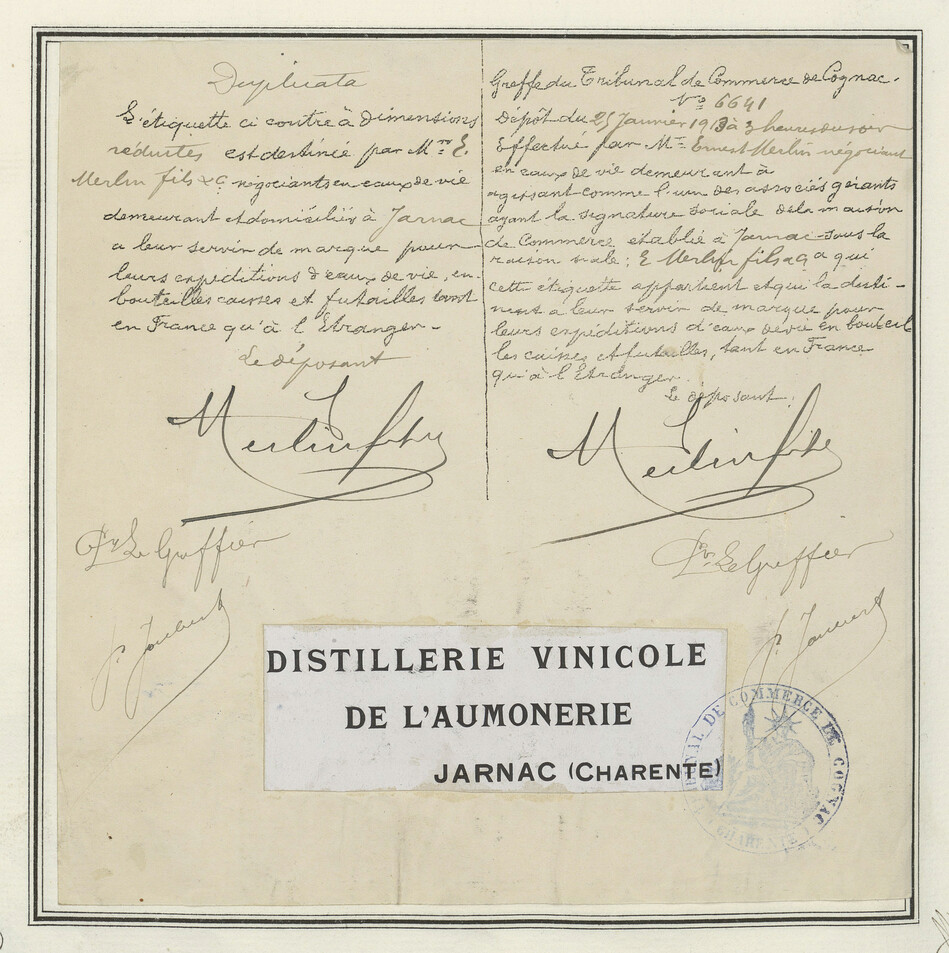 Duplicata
L'étiquette ci contre à dimensions
réduites est destinié par Mrs E.
Merlin fils & Co négociants en eaux de vie
demeurant et domiciliés à Jarnac
a leur servir de marque pour
leurs expéditions d'eaux de vie, en
bouteilles caisses et futailles tant
en France qu'à l'Etranger -
Le déposant
Merlin fils
Pr Le Greffier
P. Joubert
Greffe du Tribunal de Commerce de Cognac.
No 6641
Dépôt du 25 Janvier 1913 à 3 heures du soir
Effectué par Mr Ernest Merlin négociant
en eaux de vie demeurant à
agissant comme l'un des associés gérants
ayant la signature sociale de la maison
de Commerce etablie à Jarnac sous la
raison sociale : E Merlin fils & Co a qui
cette étiquette appartient et qui la desti-
nent a leur servir de marque pour
leurs expéditions d'eaux de vie en bouteil
les caisses et futailles, tant en France
qu'à l'Etranger.
Le déposant.
Merlin fils
Pr Le Greffier
P. Joubert
DISTILLERIE VINICOLE
DE L'AUMONERIE
JARNAC (CHARENTE)
TRIBUNAL DE COMMERCE DE COGNAC
(CHARENTE)